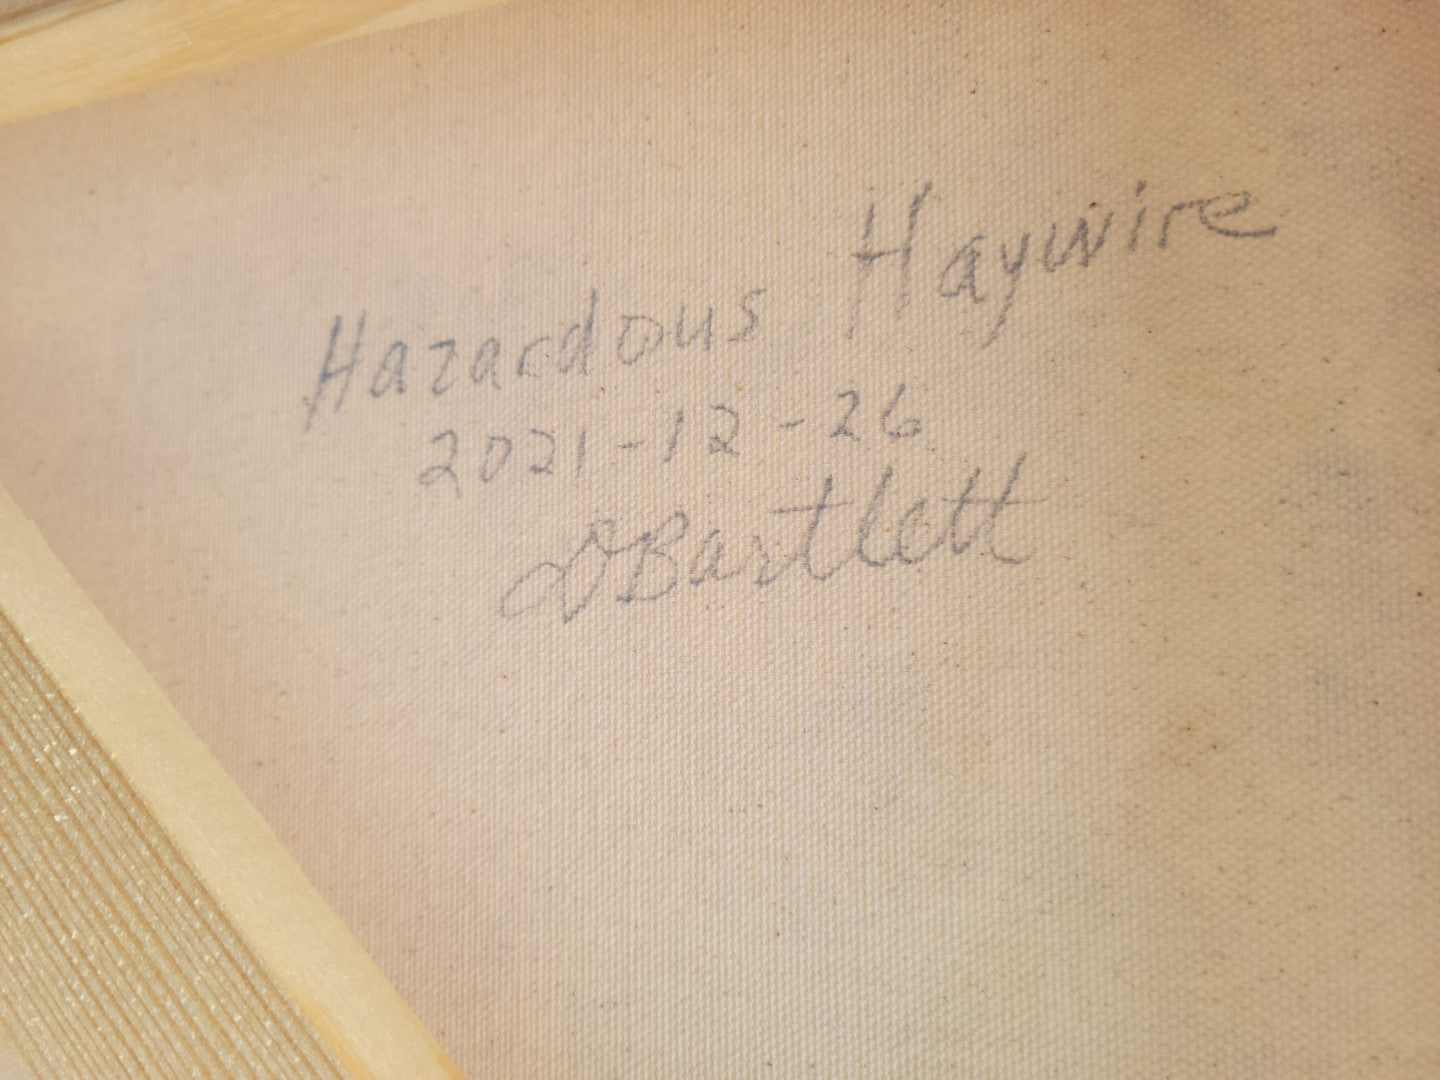 Hazardous Haywire
2021-12-26
DBartlett